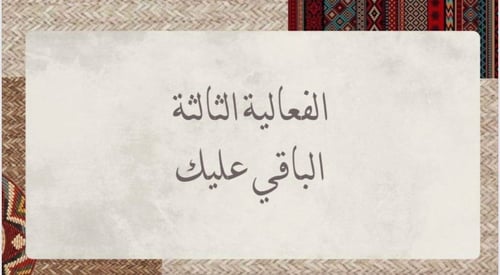 الفعالية الثالثة
الباقي عليك